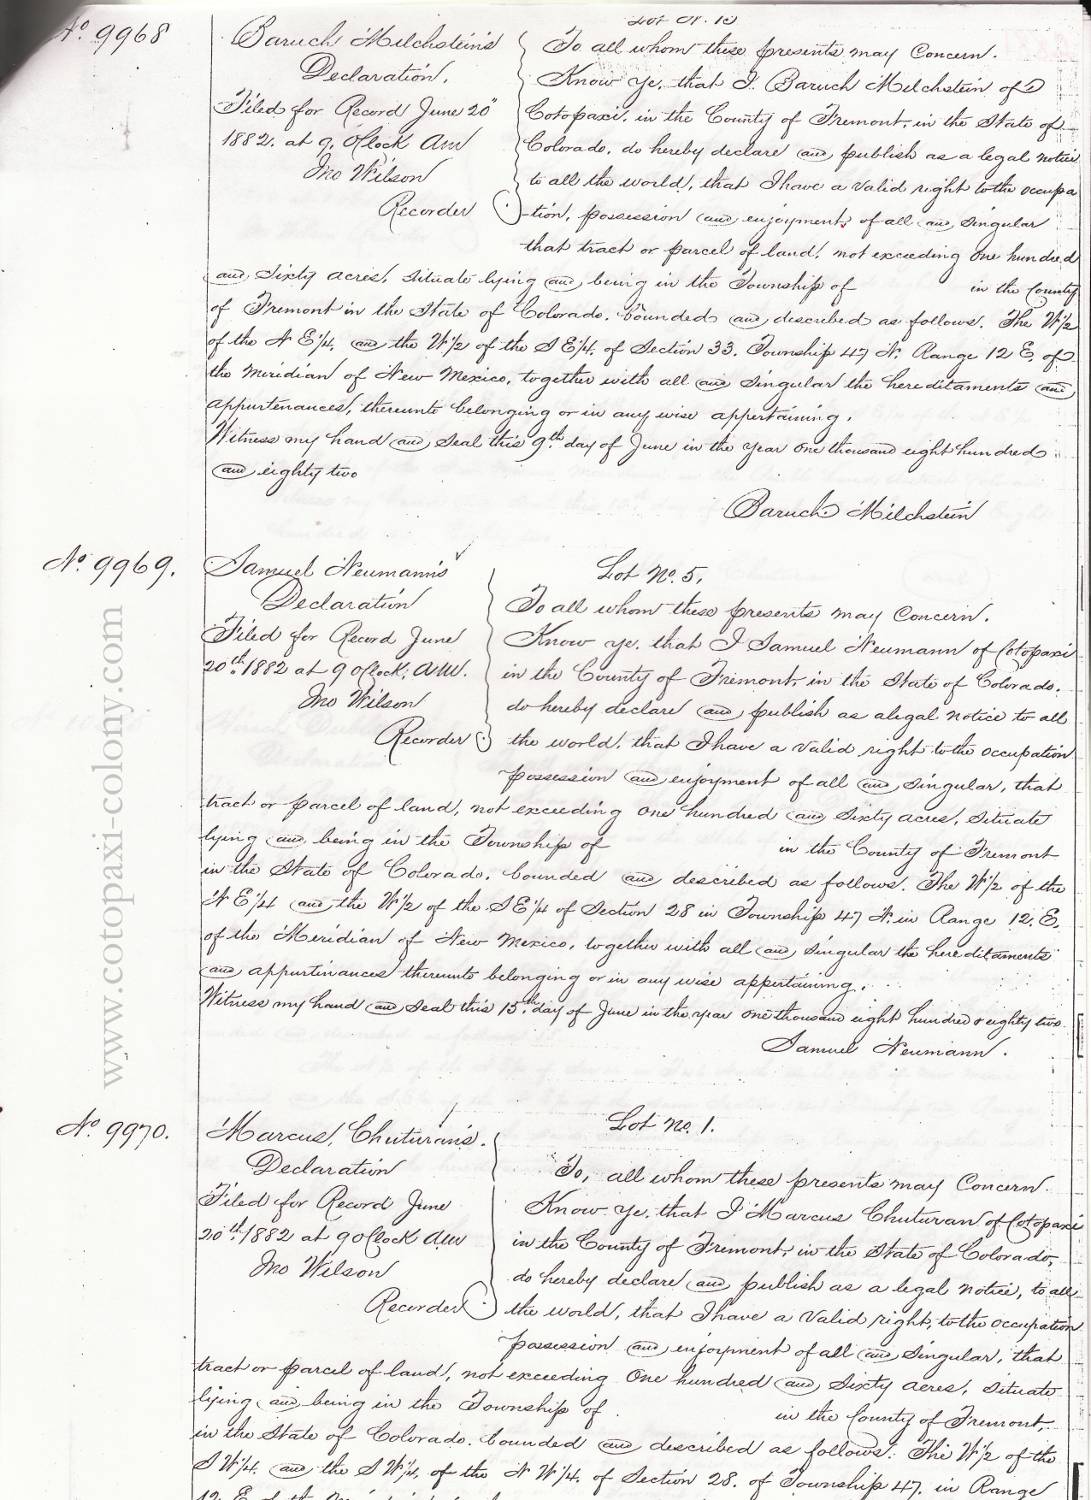 No. 9968
Baruch Milchstein's
Declaration.
Filed for Record June 20"
1882. at 9. O'Clock AM
Jno Wilson
Recorder
To all whom these presents may Concern.
Know ye, that I. Baruch Milchstein of
Cotopaxi. in the County of Fremont, in the State of
Colorado, do hereby declare and publish as a legal notice
to all the world, that I have a valid right to the occupa
tion, possession and enjoyment, of all and singular
that tract or parcel of land, not exceeding one hundred
and sixty acres, situate lying and being in the Township of in the County
of Fremont in the State of Colorado. bounded and described as follows. The W 1/2
of the N E 1/4. and the W 1/2 of the S E 1/4. of Section 33. Township 47 N. Range 12 E. of
the Meridian of New Mexico, together with all and singular the hereditaments and
appurtenances, thereunto belonging or in any wise appertaining.
Witness my hand and seal this 9th day of June in the year one thousand eight hundred
and eighty two
Baruch Milchstein
No. 9969.
Samuel Neumann's
Declaration
Filed for Record June
20th 1882 at 9 O'Clock, AM.
Jno Wilson
Recorder
Lot No. 5,
To all whom these presents may Concern.
Know ye. that I Samuel Neumann of Cotopaxi
in the County of Fremont, in the State of Colorado.
do hereby declare and publish as a legal notice to all
the world, that I have a valid right to the occupation
possession and enjoyment of all and singular, that
tract or parcel of land, not exceeding one hundred and sixty acres, situate
lying and being in the Township of in the County of Fremont
in the State of Colorado. bounded and described as follows. The W 1/2 of the
N E 1/4 and the W 1/2 of the S E 1/4 of Section 28 in Township 47 N. in Range 12. E.
of the Meridian of New Mexico, together with all and singular the hereditaments
and appurtinances thereunto belonging or in any wise appertaining.
Witness my hand and seal this 15th day of June in the year one thousand eight hundred & eighty two
Samuel Neumann.
No. 9970.
Marcus, Chuturan's.
Declaration
Filed for Record June
20th 1882 at 9 O'Clock AM
Jno Wilson
Recorder
Lot No. 1.
To, all whom these presents may Concern.
Know ye. that I Marcus Chuturan of Cotopaxi
in the County of Fremont, in the State of Colorado,
do hereby declare and publish as a legal notice, to all
the world, that I have a valid right, to the occupation
possession and enjoyment of all and singular, that
tract or parcel of land, not exceeding one hundred and sixty acres, situate
lying and being in the Township of in the County of Fremont,
in the State of Colorado. bounded and described as follows: The W 1/2 of the
S W 1/4. and the S W 1/4, of the N W 1/4. of Section 28. of Township 47. in Range
www.cotopaxi-colony.com